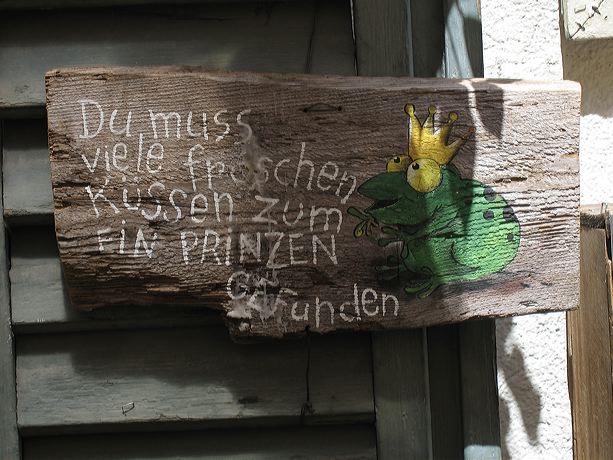 Du muss
viele froschen
Küssen zum
EIN PRINZEN
Gefunden